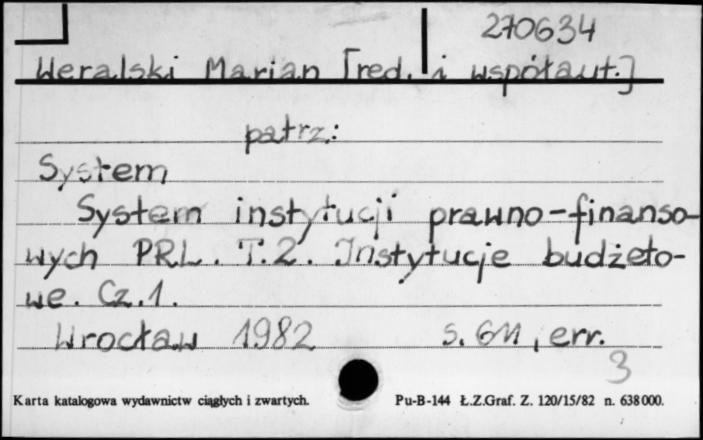 270634
Weralski Marian [red. i współaut.]
patrz:
System
System instytucji prawno-finanso-
wych PRL. T.2. Instytucje budżeto-
we. Cz.1.
Wrocław 1982 s. 611, err.
3
Karta katalogowa wydawnictw ciągłych i zwartych. Pu-B-144 Ł.Z.Graf. Z. 120/15/82 n. 638000.